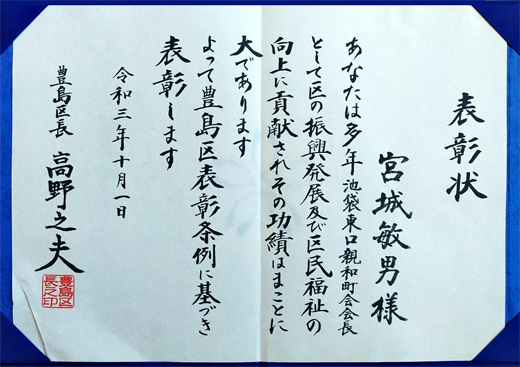 表彰状
宮城敏男様
あなたは多年池袋東口親和町会会長
として区の振興発展及び区民福祉の
向上に貢献されその功績はまことに
大であります
よって豊島区表彰条例に基づき
表彰します
令和三年十月一日
豊島区長 高野之夫
豊島区
長之印